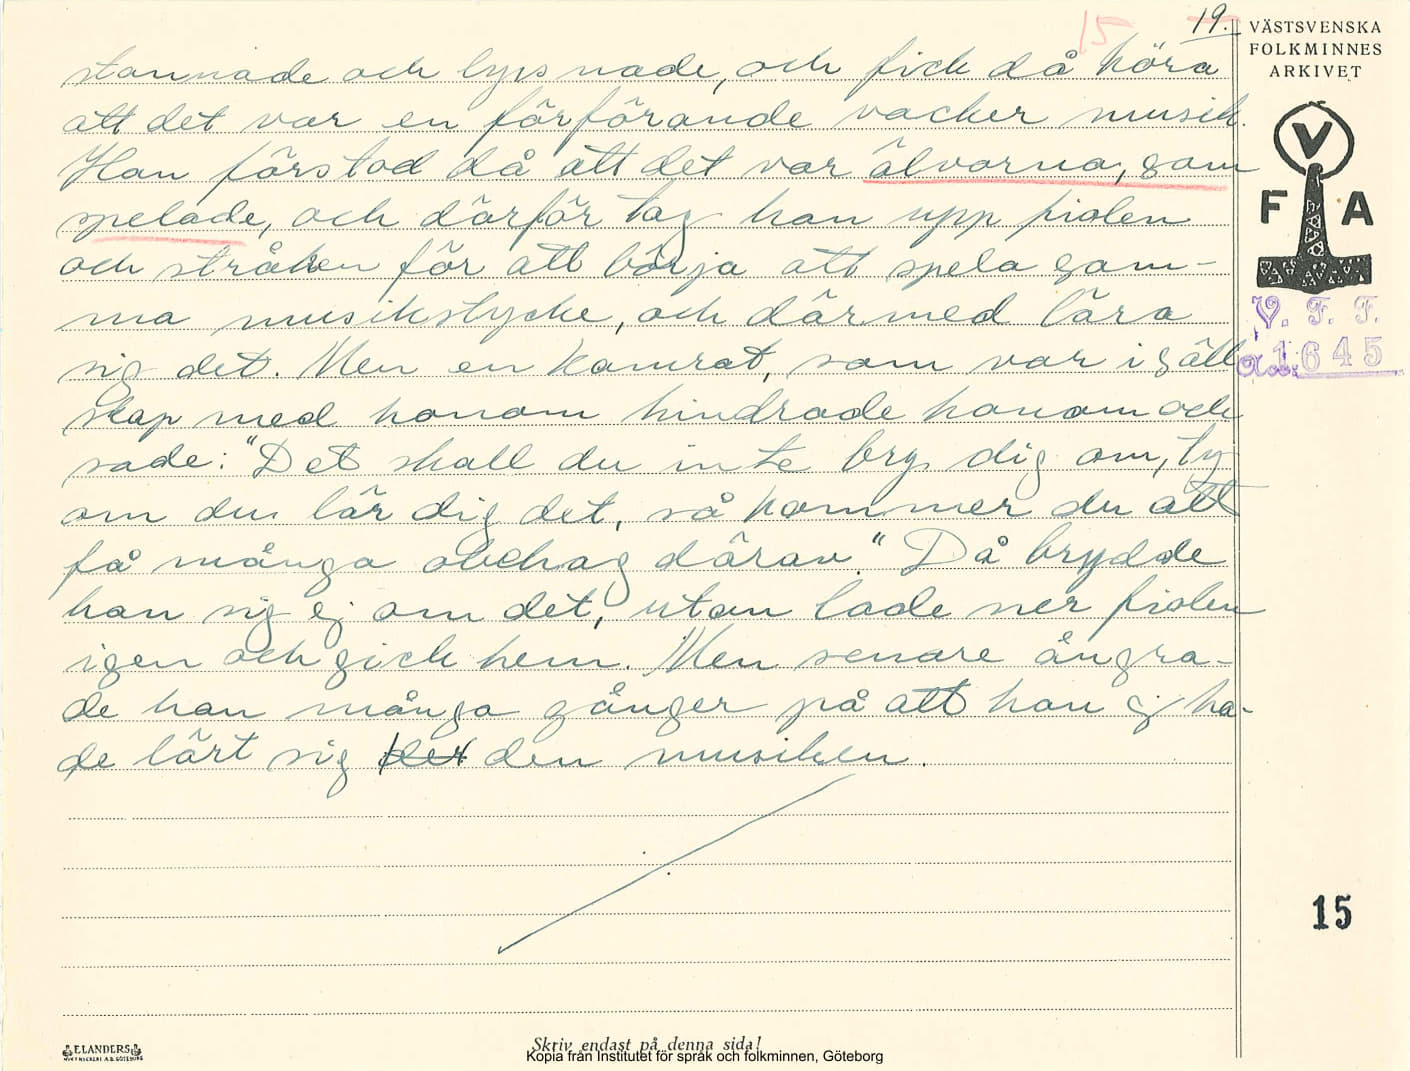 15
19.
VÄSTSVENSKA
FOLKMINNES
ARKIVET
V
F A
V. F. F.
a.1:645
stannade och lyssnade, och fick då höra
att det var en förförande vacker musik.
Han förstod då att det var älvorna, som
spelade, och därför tog han upp fiolen
och stråken för att börja att spela sam-
ma musikstycke, och därmed lära
sig det. Men en kamrat, som var i säll
skap med honom hindrade honom och
sade: "Det skall du inte bry dig om, ty
om du lär dig det, så kommer du att
få många obehag därav." Då brydde
han sig ej om det, utan lade ner fiolen
igen och gick hem. Men senare ångra-
de han många gånger på att han ej ha-
de lärt sig det den musiken.
15
ELANDERS
Skriv endast på denna sida!
Kopia från Institutet för språk och folkminnen, Göteborg